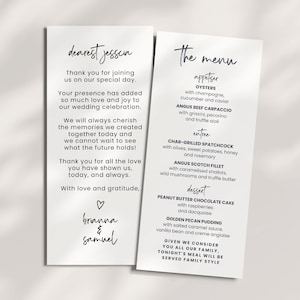 dearest jessica
Thank you for joining
us on our special day.
Your presence has added
so much love and joy to
our wedding celebration.
We will always cherish
the memories we created
together today and
we cannot wait to see
what the future holds!
Thank you for all the love
you have shown us,
today, and always.
With love and gratitude,
brianna
&
samuel
the menu
appetiser
OYSTERS
with champagne,
cucumber and caviar
ANGUS BEEF CARPACCIO
with grissini, pecorino
and truffle aioli
entree
CHAR-GRILLED SPATCHCOCK
with olives, sweet potatoes, honey
and rosemary
ANGUS SCOTCH FILLET
with caramelised shallots,
wild mushrooms and truffle butter
dessert
PEANUT BUTTER CHOCOLATE CAKE
with raspberries
and dacquoise
GOLDEN PECAN PUDDING
with salted caramel sauce,
vanilla bean and creme anglaise
GIVEN WE CONSIDER
YOU ALL OUR FAMILY,
TONIGHT'S MEAL WILL BE
SERVED FAMILY STYLE